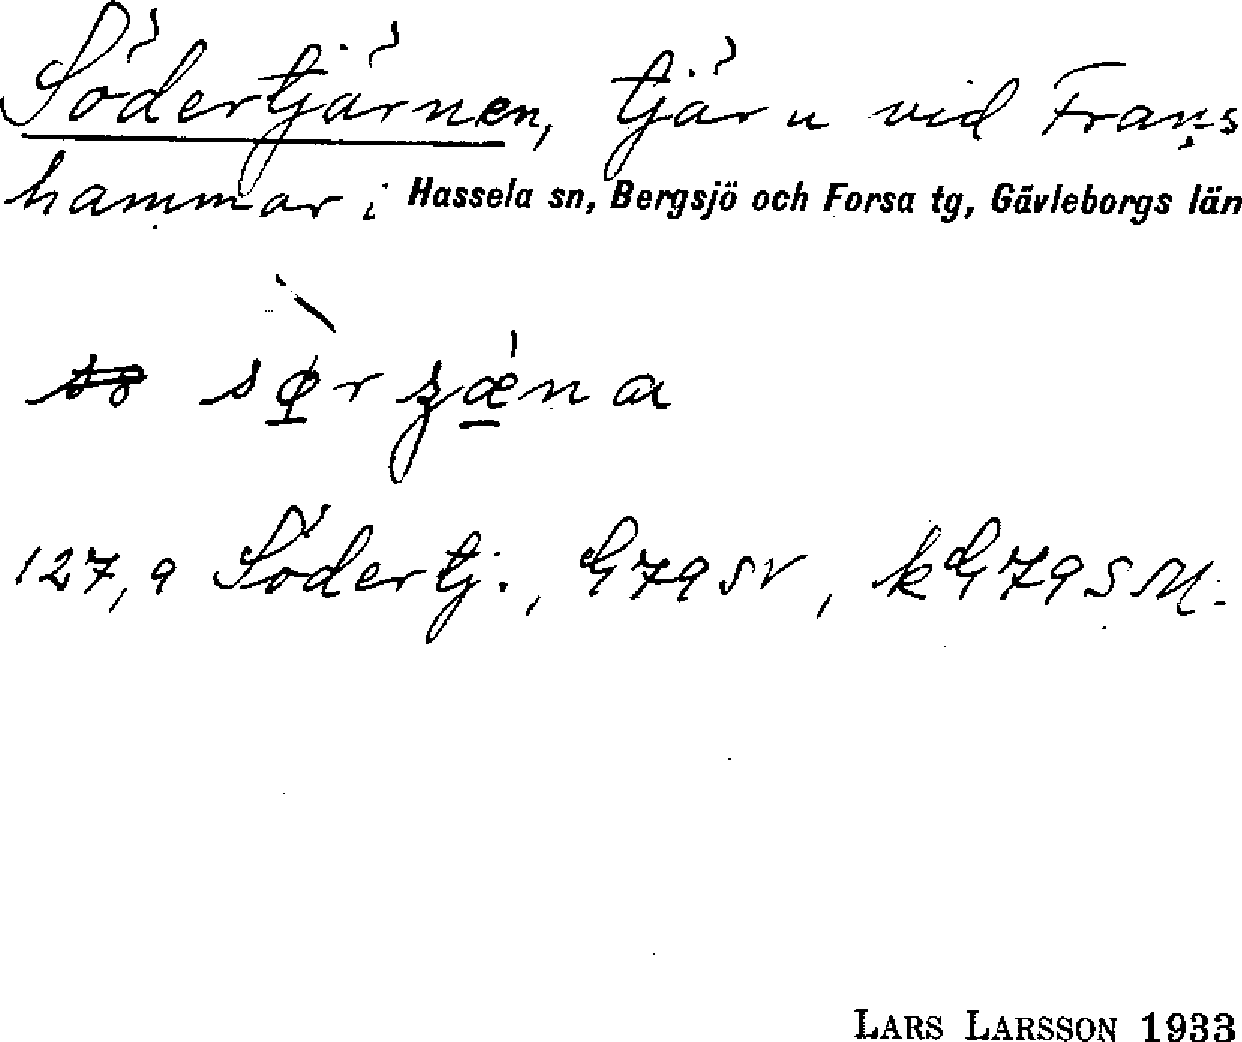 Södertjärnen, tjärn vid Frans
hammar i Hassela sn, Bergsjö och Forsa tg, Gävleborgs län
sø̀rʒǽna
127,9 Södertj., G79SV, kG79SM.
LARS LARSSON 1933